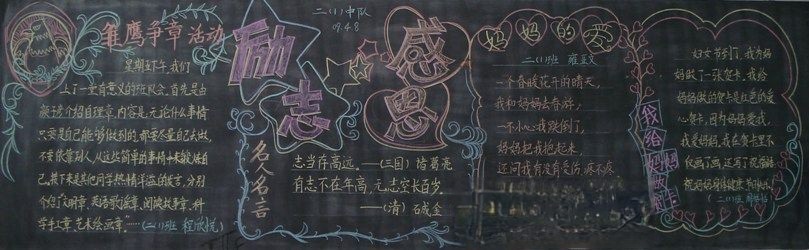 雏鹰争章活动
星期五下午,我们
上了一堂有意义的班队会,首先是由
颜于涉介绍自理章,内容是:无论什么事情
只要是自己能够做到的,都要尽量自己去做,
不要依靠别人,从这些简单的事情中来锻炼自
己,接下来是其他同学热情洋溢的发言,分别
介绍了文明章、英语歌谣章、阅读故事章、科
学手工章、艺术绘画章……(二(1)班 程欣悦)
二(1)中队
09.4.8
励志
感恩
名人名言
志当存高远。——(三国)诸葛亮
有志不在年高,无志空长百岁。
——(清)石成金
妈妈的爱
二(1)班
一个春暖花开的晴天,
我和妈妈去春游;
一不小心我跌倒了,
妈妈把我抱起来,
还问我有没有受伤,疼不疼
我给妈妈做贺卡
妇女节到了,我为妈
妈做了一张贺卡,我给
妈妈做的贺卡是红色的爱
心贺卡,因为妈妈爱我,
我爱妈妈,我在贺卡里不
仅画了画,还写了祝福语
祝妈妈身体健康
二(1)班